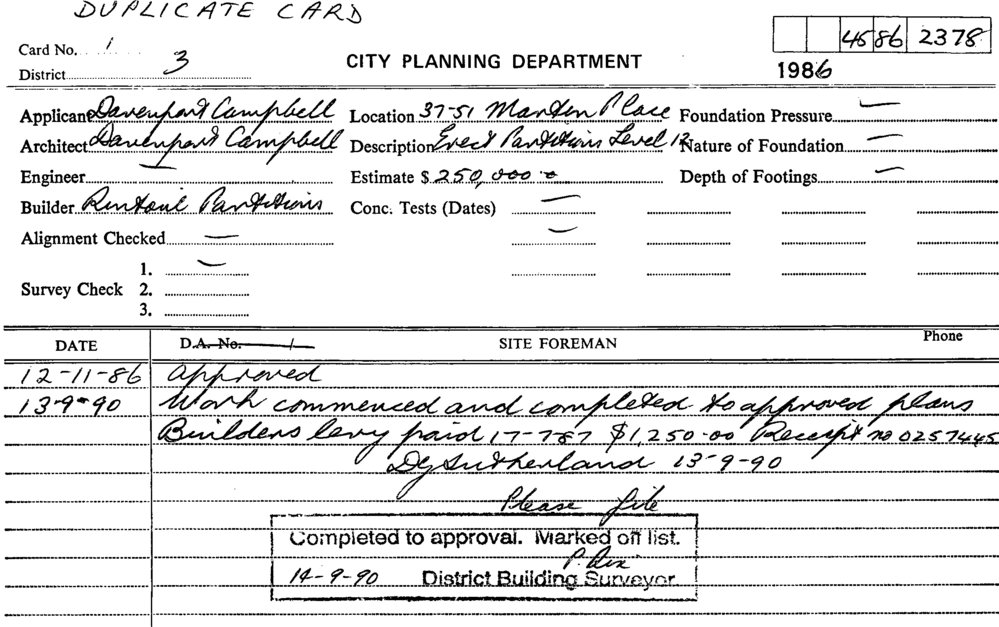 DUPLICATE CARD
Card No. 1
45 86 2378
District 3
CITY PLANNING DEPARTMENT
1986
Applicant Davenport Campbell Location 37-51 Martin Place Foundation Pressure —
Architect Davenport Campbell Description Erect Partitions Level 12 Nature of Foundation —
Engineer — Estimate $ 250,000.0 Depth of Footings —
Builder Rintoul Partitions Conc. Tests (Dates) —
Alignment Checked — —
1. —
Survey Check 2.
3.
DATE D.A. No. / SITE FOREMAN Phone
12-11-86 Approved
13-9-90 Work commenced and completed to approved plans
Builders levy paid 17-7-87 $1,250.00 Receipt no 0257445
DG Sutherland 13-9-90
Please file
Completed to approval. Marked off list.
14-9-90 District Building Surveyor